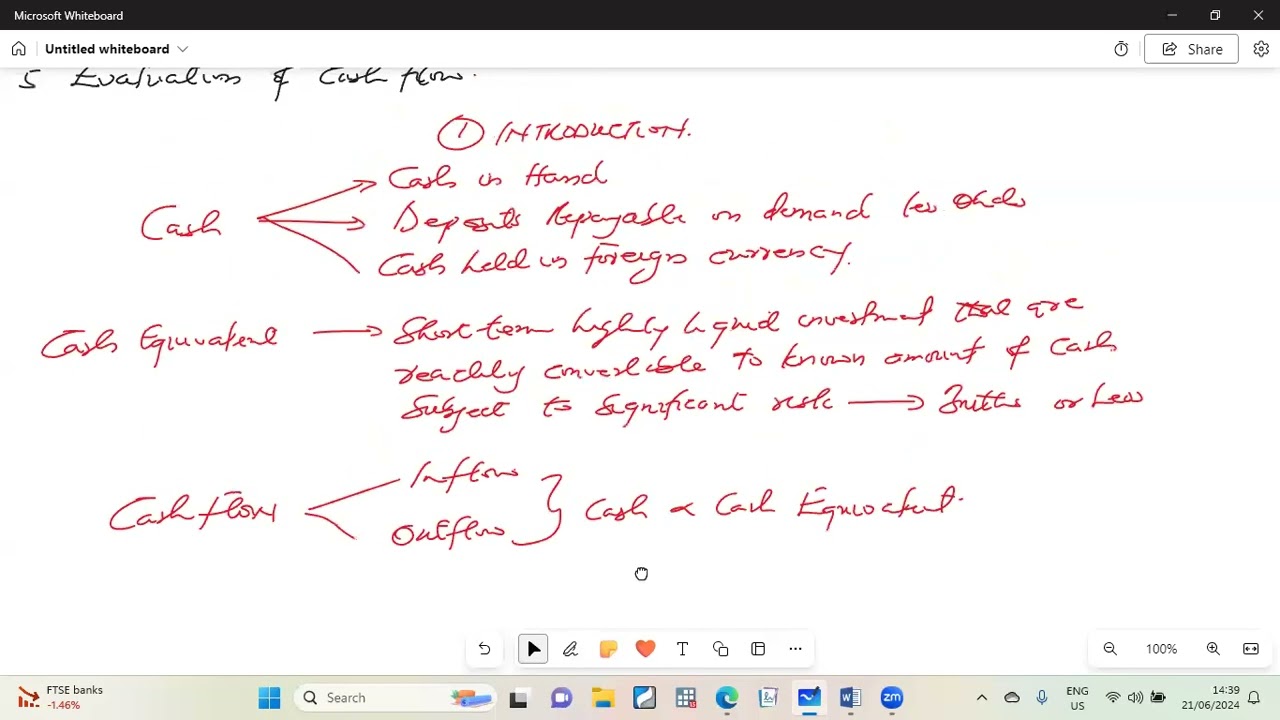 Microsoft Whiteboard
Untitled whiteboard
Share
5 Evaluation of Cash flow.
① INTRODUCTION.
Cash in Hand
Cash
Deposits Repayable on demand less
Cash held in foreign currency.
Cash Equivalent
Short term highly liquid investment that are
readily convertible to known amount of cash
Subject to significant risk → or Less
Cash flow
Inflow
Outflow
Cash & Cash Equivalent.
100%
FTSE banks
-1.46%
Search
ENG
US
14:39
21/06/2024
zm